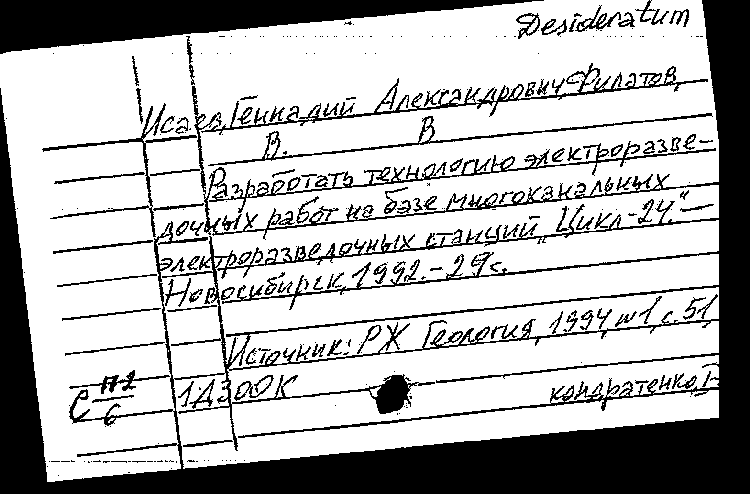 Desideratum
Исаев, Геннадий Александрович, Филатов,
В. В
Разработать технологию электроразве-
дочных работ на базе многоканальных
электроразведочных станций "Цикл-24." —
Новосибирск, 1992. - 29 с.
Источник: РЖ Геология, 1994, №1, с. 51,
1Д300К
С п-2/6
кондратенко, Г